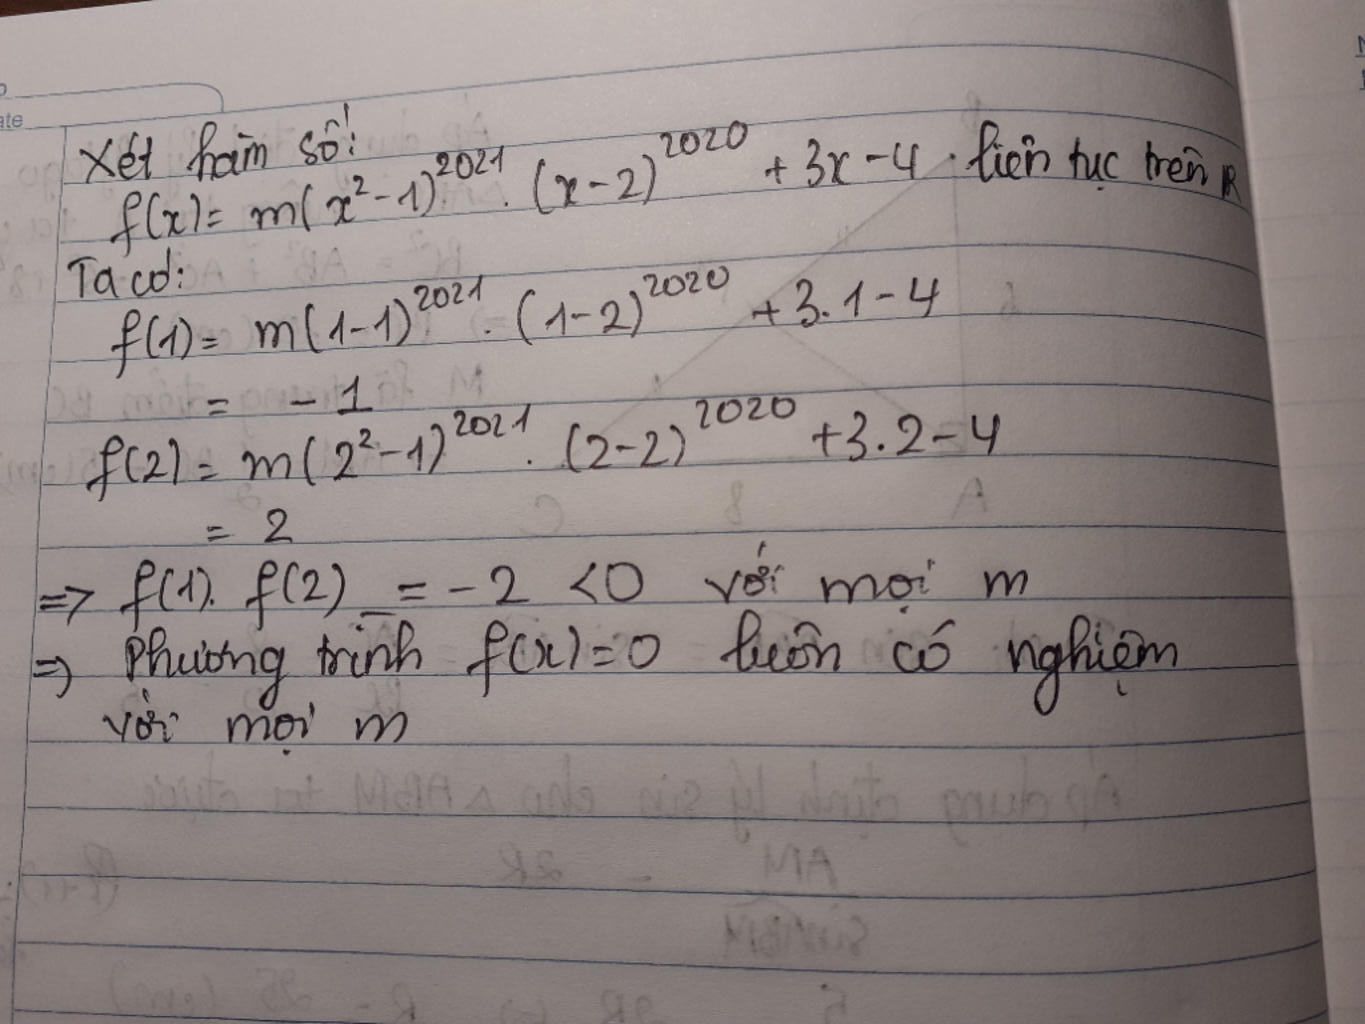 Xét hàm số:
f(x) = m(x² - 1)²⁰²¹ . (x - 2)²⁰²⁰ + 3x - 4 . liên tục trên R
Ta có:
f(1) = m(1 - 1)²⁰²¹ . (1 - 2)²⁰²⁰ + 3.1 - 4
= -1
f(2) = m(2² - 1)²⁰²¹ . (2 - 2)²⁰²⁰ + 3.2 - 4
= 2
=> f(1). f(2) = -2 <0 với mọi m
=> Phương trình f(x)=0 luôn có nghiệm
với mọi m